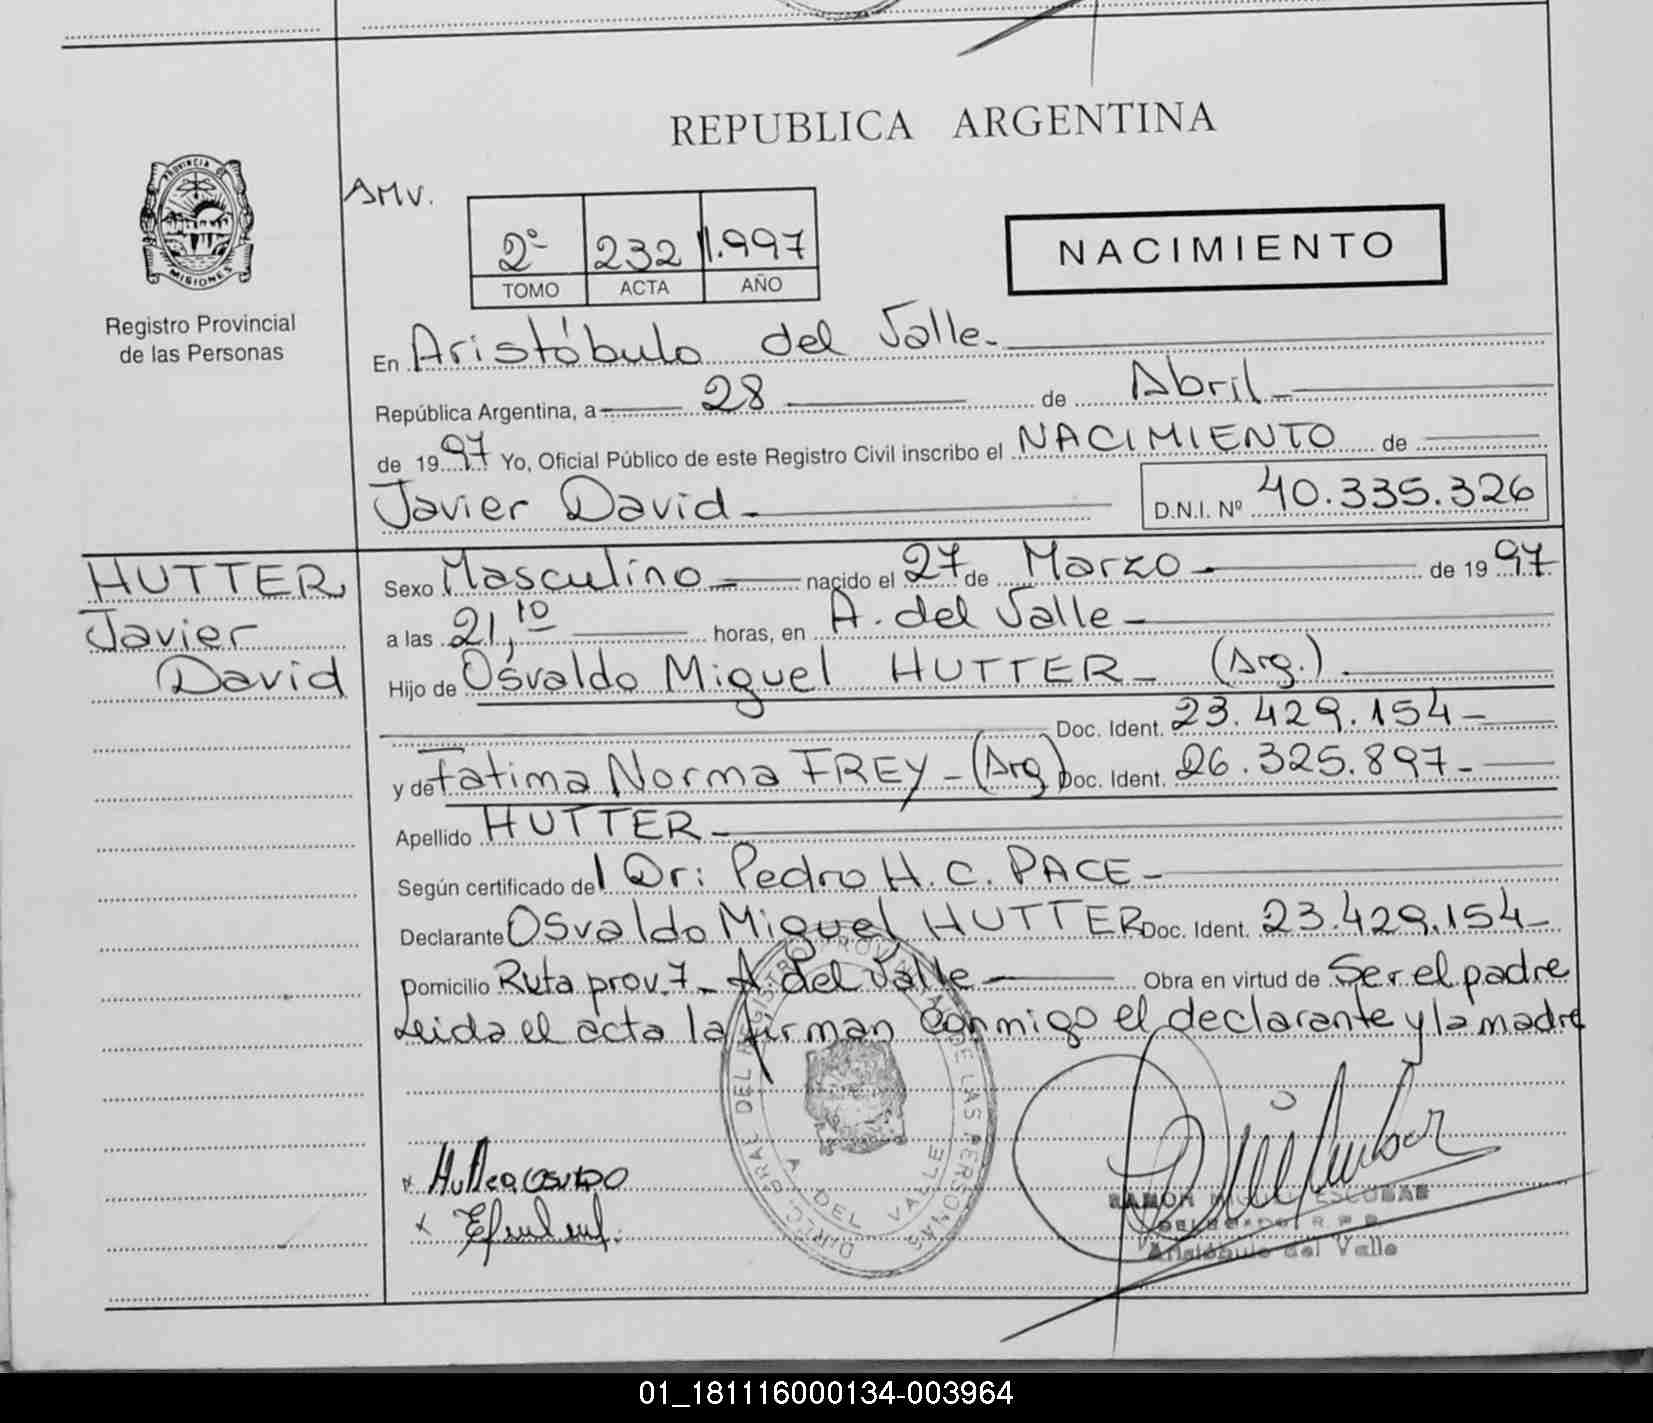 REPUBLICA ARGENTINA
PROVINCIA DE
MISIONES
Registro Provincial
de las Personas
AMV.
2º 232 1.997
TOMO ACTA AÑO
NACIMIENTO
En Aristóbulo del Valle.
República Argentina, a 28 de Abril
de 1997 Yo, Oficial Público de este Registro Civil inscribo el NACIMIENTO de
Javier David D.N.I. Nº 40.335.326
HUTTER
Javier
David
Sexo Masculino nacido el 27 de Marzo de 1997
a las 21,10 horas, en A. del Valle
Hijo de Osvaldo Miguel HUTTER (Arg.)
Doc. Ident. 23.429.154
y de Fatima Norma FREY (Arg) Doc. Ident. 26.325.897
Apellido HUTTER
Según certificado del Dr: Pedro H. C. PACE
Declarante Osvaldo Miguel HUTTER Doc. Ident. 23.429.154
Domicilio Ruta prov. 7 A. del Valle Obra en virtud de Ser el padre
Leida el acta la firman conmigo el declarante y la madre
DIREC. GRAL DEL REGISTRO PROVINCIAL DE LAS PERSONAS
A DEL VALLE
x Hutter Osvaldo
x
RAMON MIGUEL ESCOBAR
DELEGADO R P P
Aristóbulo del Valle
01_181116000134-003964